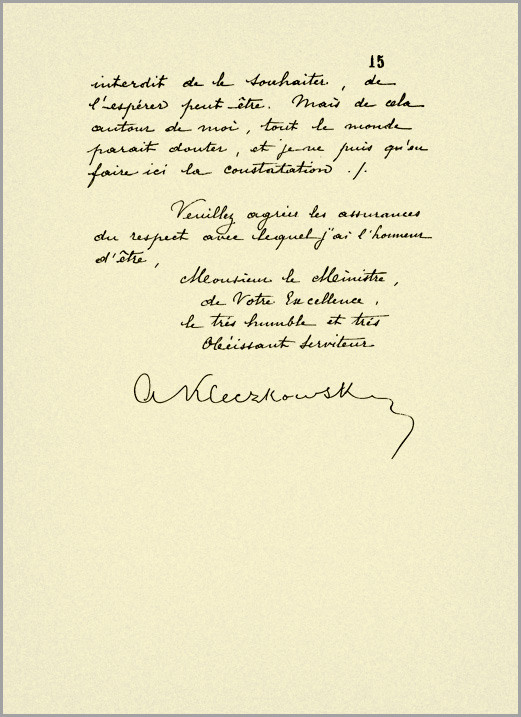 15
interdit de le souhaiter, de
l'espérer peut-être. Mais de cela
autour de moi, tout le monde
parait douter, et je ne puis qu'en
faire ici la constatation ./.
Veuillez agréer les assurances
du respect avec lequel j'ai l'honneur
d'être,
Monsieur le Ministre,
de Votre Excellence,
le très humble et très
Obéissant serviteur
A Kleczkowski